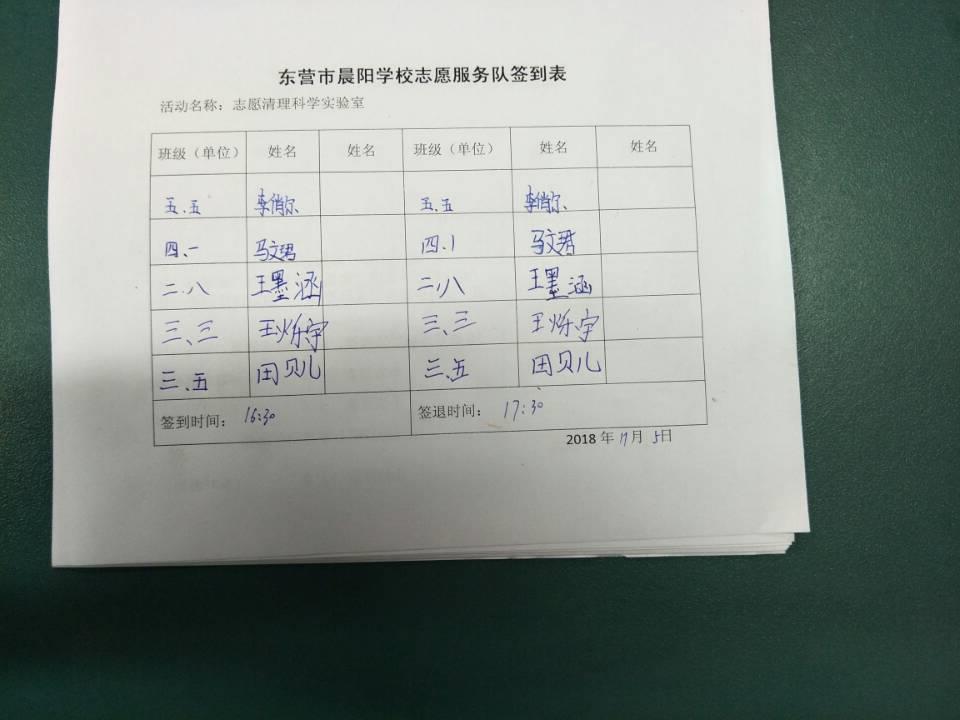 东营市晨阳学校志愿服务队签到表
活动名称：志愿清理科学实验室
班级（单位） 姓名 姓名 班级（单位） 姓名 姓名
五.五 李俏尔 五.五 李俏尔
四、一 马文君 四.1 马文君
二.八 王墨涵 二八 王墨涵
三、三 王烁宇 三、三 王烁宇
三、五 田贝儿 三、五 田贝儿
签到时间： 16:30 签退时间： 17:30
2018 年 11 月 5 日